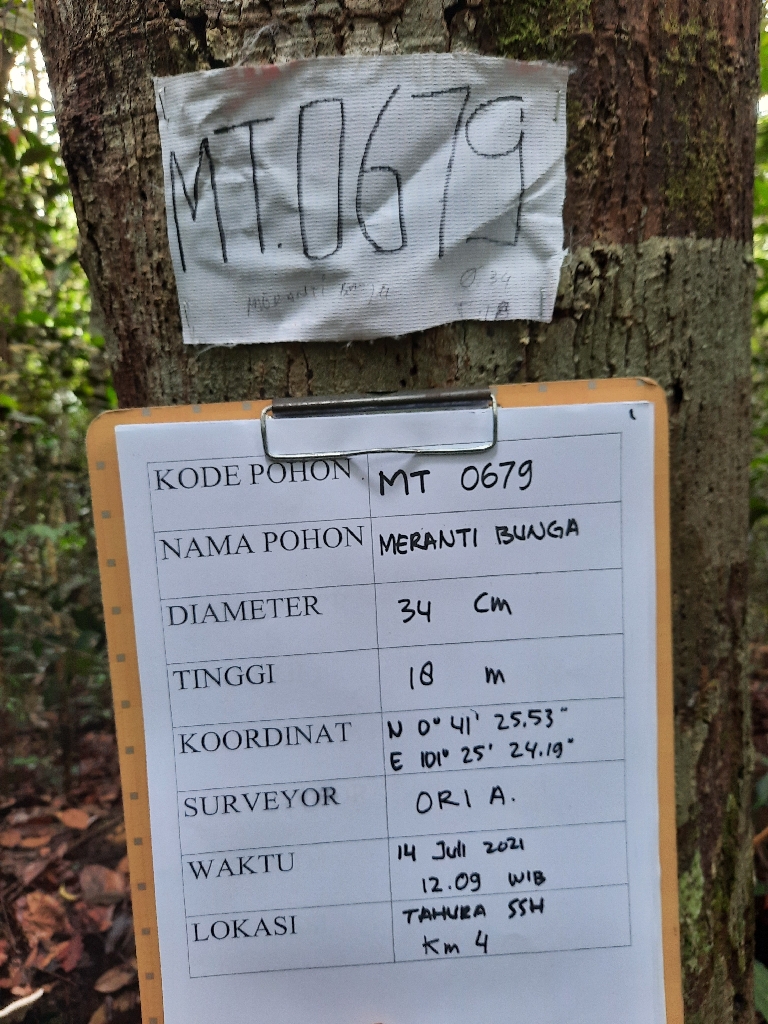 MT.0679
MERANTI Bunga
0 34
18
KODE POHON MT 0679
NAMA POHON MERANTI BUNGA
DIAMETER 34 Cm
TINGGI 18 m
KOORDINAT N 0° 41' 25.53"
E 101° 25' 24.19"
SURVEYOR ORI A.
WAKTU 14 Juli 2021
12.09 WIB
LOKASI TAHURA SSH
Km 4